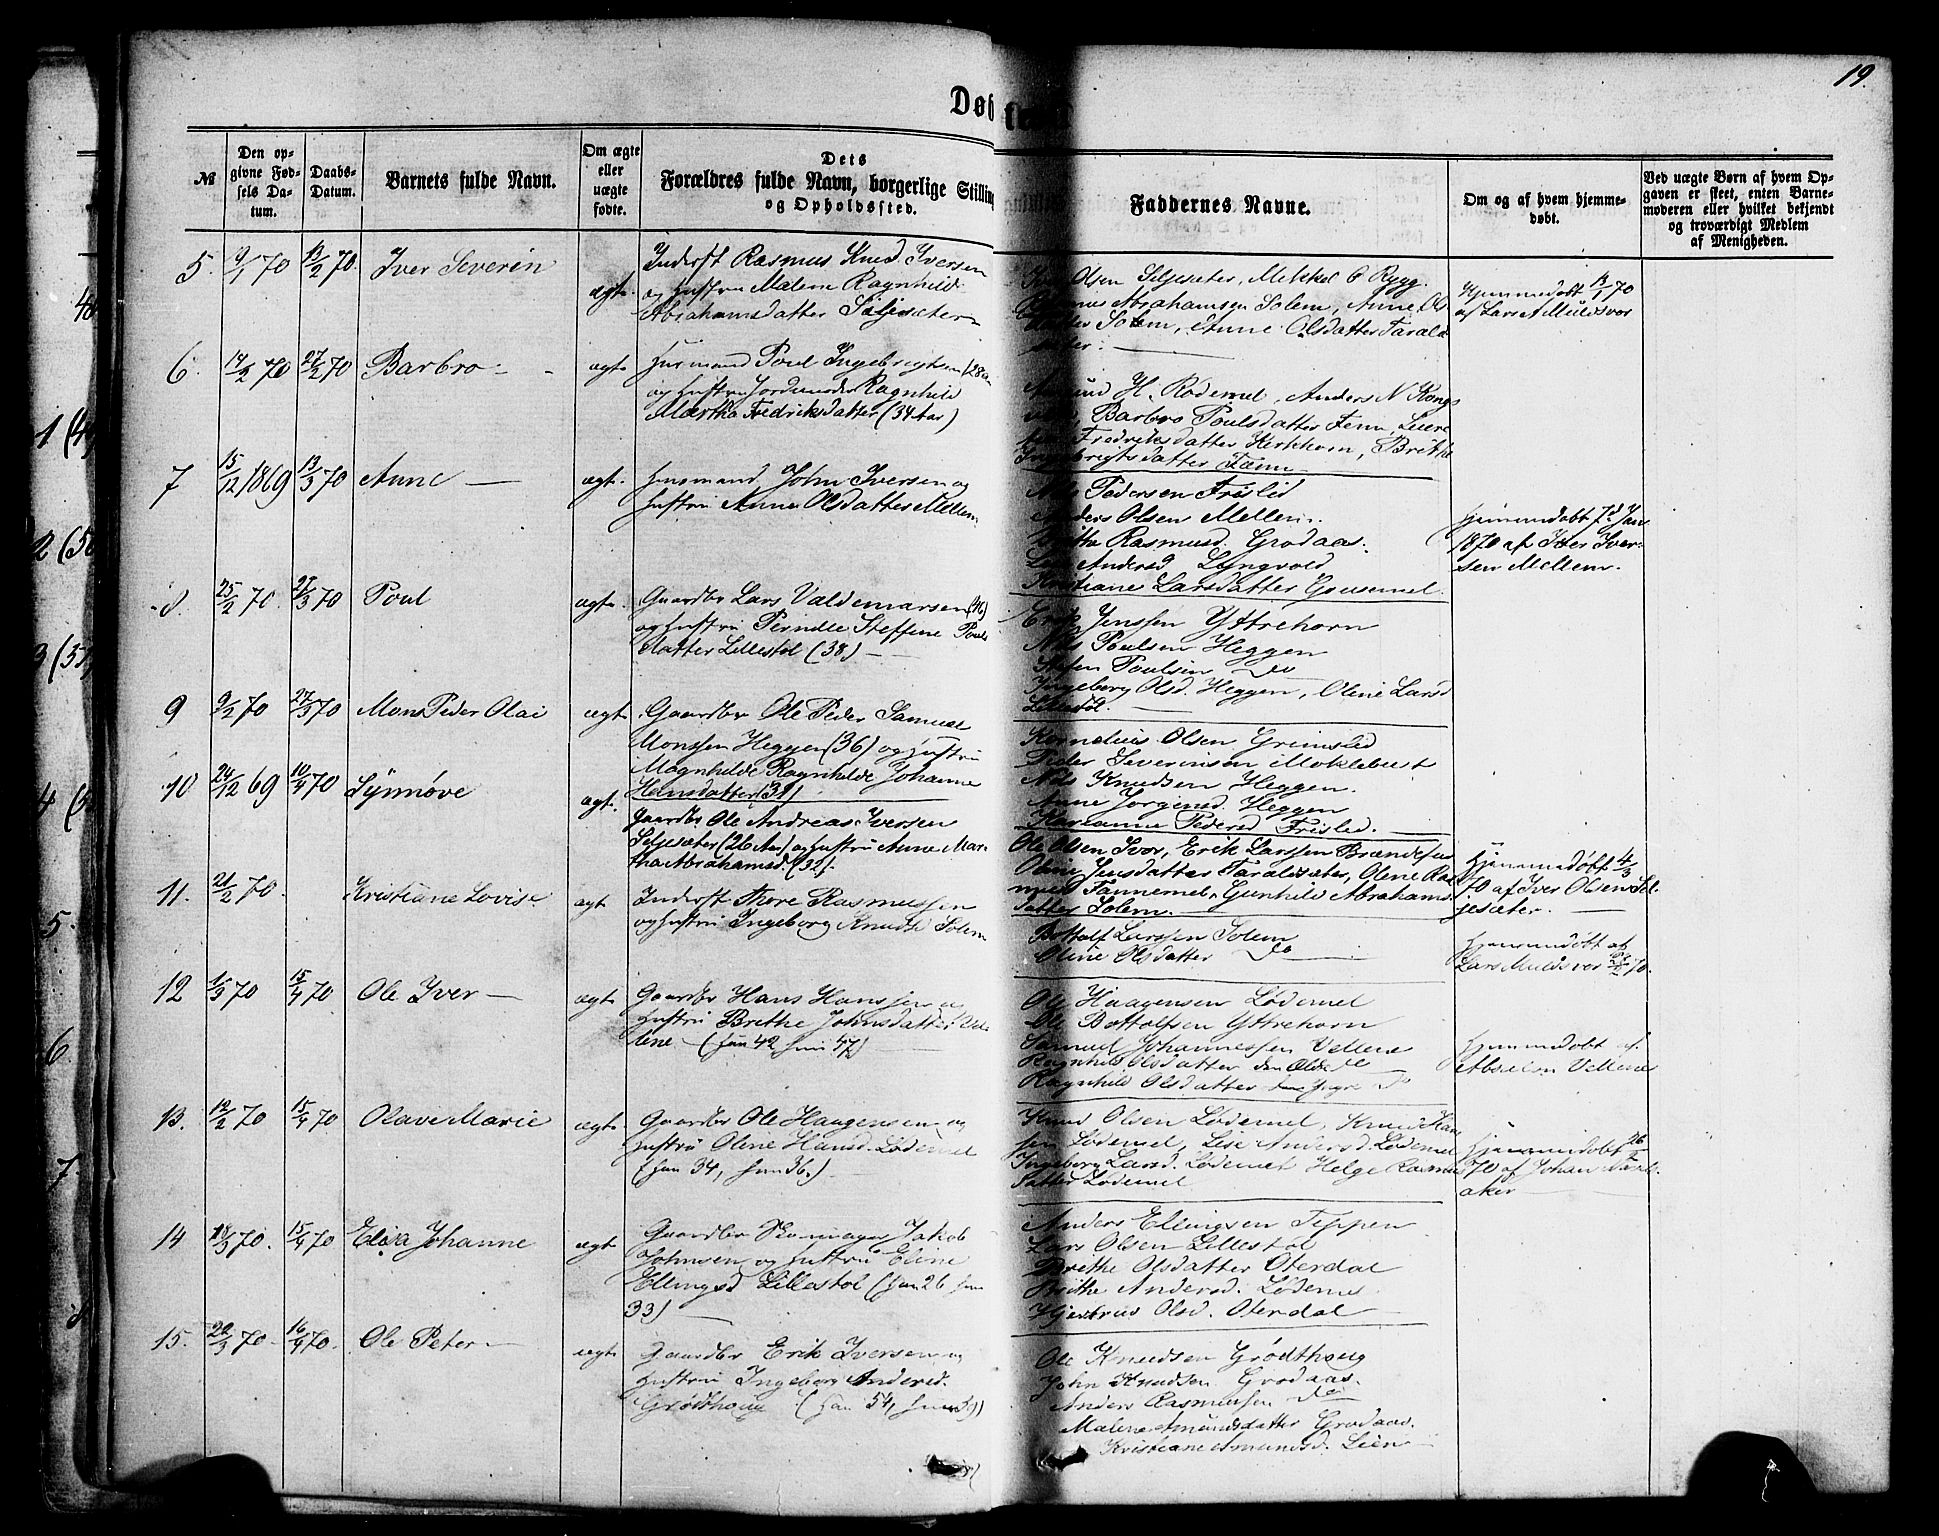 19.
Døbte
№
Den opgivne Fødsels Datum.
Daabs-Datum.
Barnets fulde Navn.
Om ægte eller uægte fødte.
Dets Forældres fulde Navn, borgerlige Stilling og Opholdssted.
Faddernes Navne.
Om og af hvem hjemmedøbt.
Ved uægte Børn af hvem Opgaven er skeet, enten Barnemoderen eller hvilket bekjendt og troværdigt Medlem af Menigheden.
5. 9/1 70 13/2 70. Iver Severin ægt.
Inderst Rasmus Knud Iversen
og Hustru Malene Ragnhild
Abrahamsdatter Siljesæter
Olsen Siljesæter, Mekkel O Rygg.
Abrahamsen Solem, Anne Ols
datter Solem, Anne Olsdatter Tarald
sæter.
Hjemmedøbt 70
af Lars A Muldsvor
6. 14/2 70 27/2 70 Barbro ægt.
Huusmand Poul Ingebrigtsen (28 Aar
og Hustru Ragnhild
Martha Fredriksdatter (34 Aar)
H. Rødemel, Anders N Kongs
Barbro Poulsdatter Fenn,
Fredriksdatter Kirkhorn, Brithe
Ingebrigtsdatter Fænn
7 15/12 1869 13/3 70 Anne ægt.
Huusmand John Iversen og
Hustru Anne Olsdatter Mellem
Nils Pedersen Frislid
Anders Olsen Mellem.
Rasmusd. Grodaas.
Andersd Lyngvold
Kristiane Larsdatter
Hjemmedøbt 7d Jan
1870 af Iver Iver-
sen Mellem.
8. 25/2 70. 27/3 70 Poul ægt.
Gaardbr Lars Valdemarsen (46)
og Hustru Pernille Steffine Pouls
datter Lillestøl (38)
Erik Jenssen Yttrehorn
Nils Poulsen Heggen
Stefen Poulsen Do
Ingeborg Olsd. Heggen, Oline Larsd
Lillestøl.
9 9/2 70 27/3 70 Mons Peder Olai ægt.
Gaardbr Ole Peder Samuel
Monssen Heggen (36) og Hustru
Magnhilde Ragnhilde Johanne
Hansdatter (31)
Kornelius Olsen Grimslid
Peder Severinsen Moklebust
Nils Knudsen Heggen.
Anne Jorgensd. Heggen
Karianne Pedersd Frislid.
10 24/12 69 10/4 70 Synnøve ægt.
Gaardbr Ole Andreas Iversen
Siljesæter (26 Aar) og Hustru Anne Mar
tha Abrahamsd. (35).
Ole Olsen Ivor, Erik Larssen
Oline Jensdatter Taraldsæter, Olene Ras
musd Fannemel, Gunhild Abrahams
datter Solem.
Hjemmedøbt 4/3
70 af Iver Olsen Sil-
jesæter.
11. 21/2 70. Kristiane Lovise ægt
Inderst Thore Rasmussen
og Hustru Ingeborg Knudsd Solem
Bottolf Larssen Solem
Oline Olsdatter Do
Hjemmedøbt af
Lars Muldsvor 70.
12 1/3 70 15/4 70 Ole Iver ægt
Gaardbr Hans Hanssen og
Hustru Brethe Johnsdatter Vel-
lene (han 42 hun 47)
Ole Haagensen Lødemel
Ole Bottolfsen Yttrehorn
Samuel Johannessen Vellene
Ragnhild Olsdatter den Ældre Do
Ragnhild Olsdatter den Yngre Do
Hjemmedøbt af
Vellene
13. 12/2 70 15/4 70 Olave Marie ægt.
Gaardbr Ole Haagensen og
Hustru Olene Hansd. Lødemel
(han 34, hun 36.)
Knud Olsen Lødemel, Knud Han
sen Lødemel, Lise Andersd. Lødemel
Ingeborg Larsd. Lødemel Helge Rasmus
datter Lødemel
Hjemmedøbt 26/2
70 af Johan
aker
14 18/3 70. 15/4 70 Elisa Johanne ægt
Gaardbr Skomager Jakob
Johnsen og Hustru Eline
Ellingsd Lillestøl (han 26 hun
33)
Anders Ellingsen Teppen
Lars Olsen Lillestøl
Brithe Olsdatter Oterdal
Brithe Andersd. Lødemel
Olsd. Oterdal
15. 20/3 70 16/4 70. Ole Peter ægt
Gaardbr Erik Iversen og
Hustru Ingeborg Andersd.
Grødthoug (han 54, hun 39)
Ole Knudsen Grødthoug
John Knudsen Grodaas.
Anders Rasmussen Do
Malene Amundsdatter Grodaas.
Kristiane Amundsd. Lien